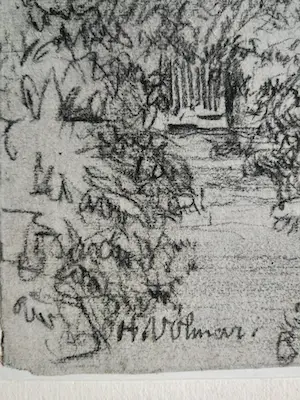 H. Völmar.